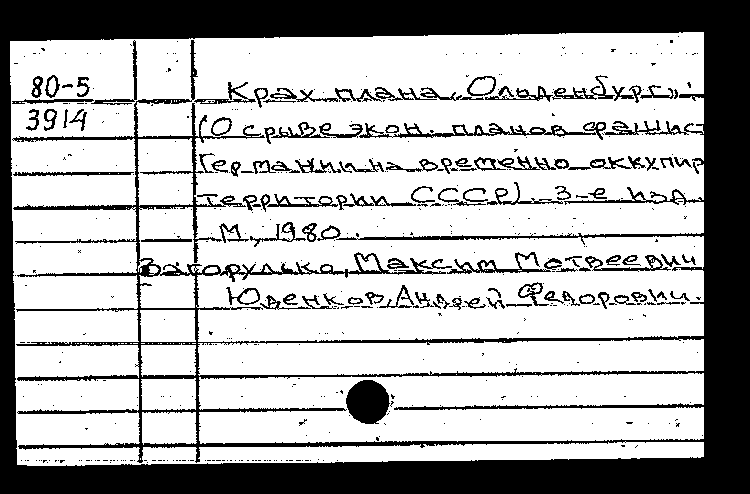 80-5 Крах плана „Ольденбург":
3914 (О срыве экон. планов фашист
Германии на временно оккупир
территории СССР). 3-е изд.
М., 1980.
Загорулько, Максим Матвеевич
Юденков, Андрей Федорович.